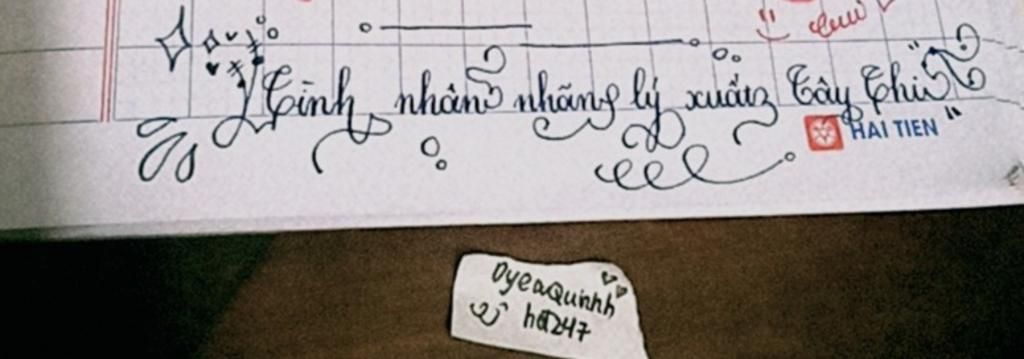 "Tình nhân nhãng lý xuất Tây Thi"
HAI TIEN
DyeaQuinhh
hđ247